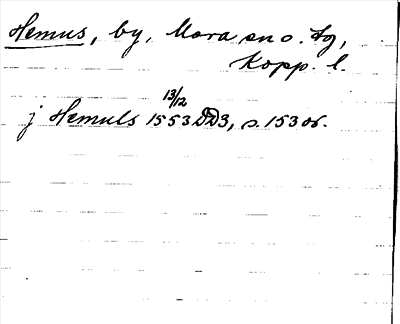 Hemus, by, Mora sn o. tg,
Kopp. l.
13/12
j Hemuls 1553 DD3, s. 153 or.